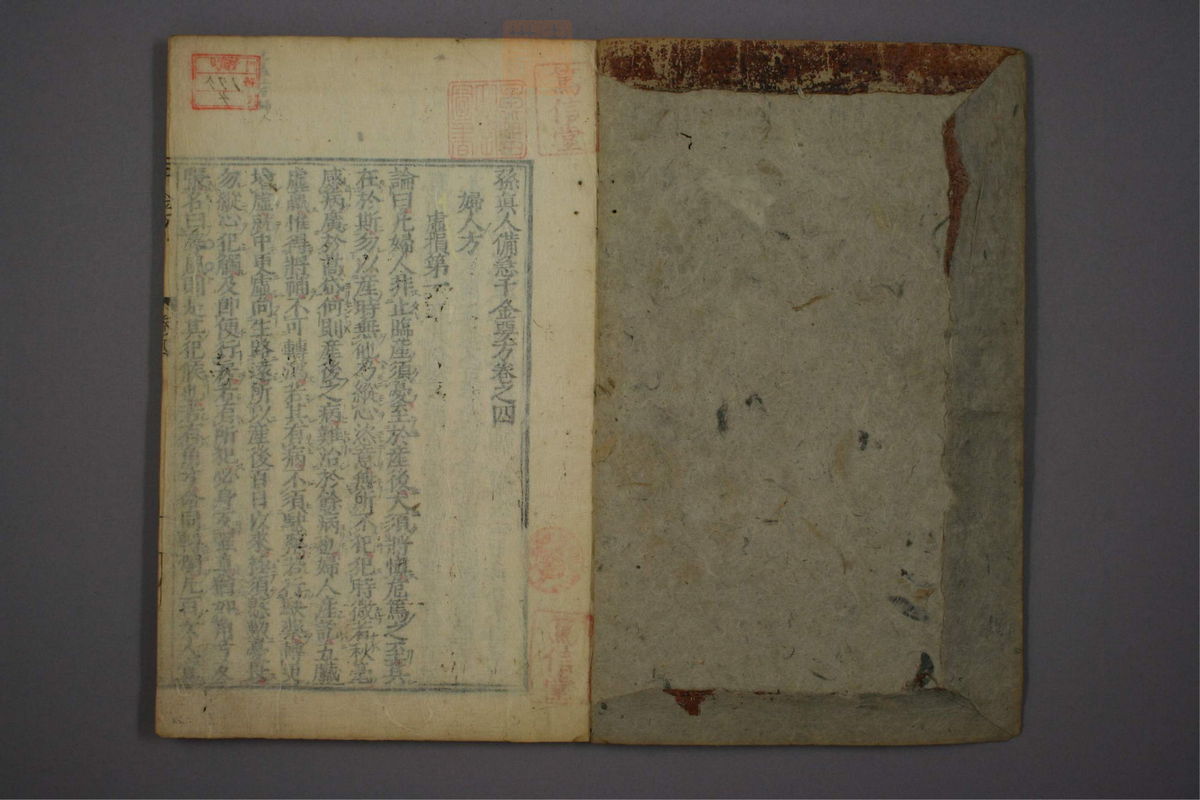 孫真人備急千金要方卷之四
婦人方
虛損第一
論曰凡婦人非止臨產須憂至於產後大須將慎危篤之至其
在於斯勿以產時無他乃縱心恣意無所不犯犯時微若秋毫
感病廣於嵩岱何則產後之病難治於餘病也婦人產訖五臟
虛羸惟得將補不可轉瀉若其有病不須駃藥若行駃藥轉更
增虛就中更虛向生路遠所以產後百日以來極須殷勤憂畏
勿縱心犯觸及即便行房若有所犯必身反強直猶如角弓反
張名曰蓐風則是其犯候也若
篤信堂